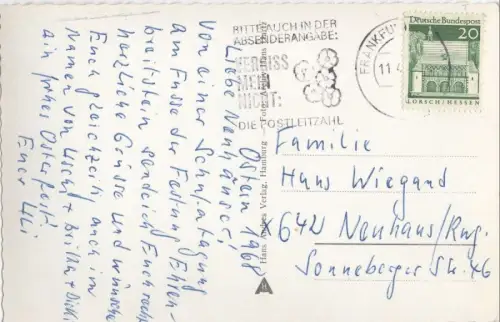 Ostern 1968
Liebe Neuhäuser!
Von einer Schultagung
am Fusse der Festung Ehren-
breitstein sende ich Euch recht
herzliche Grüsse und wünsche
Euch gleichzeitig auch im
Namen von Uschi + Brille + Dicki
ein frohes Osterfest!
Euer Uli
BITTE AUCH IN DER
ABSENDERANGABE:
VERGISS
MEIN
NICHT:
DIE POSTLEITZAHL
FRANKFU
11.4
Deutsche Bundespost
20
LORSCH/HESSEN
Hans Andres Verlag, Hamburg
Familie
Hans Wiegand
X 642 Neuhaus/Rwg.
Sonneberger Str. 46